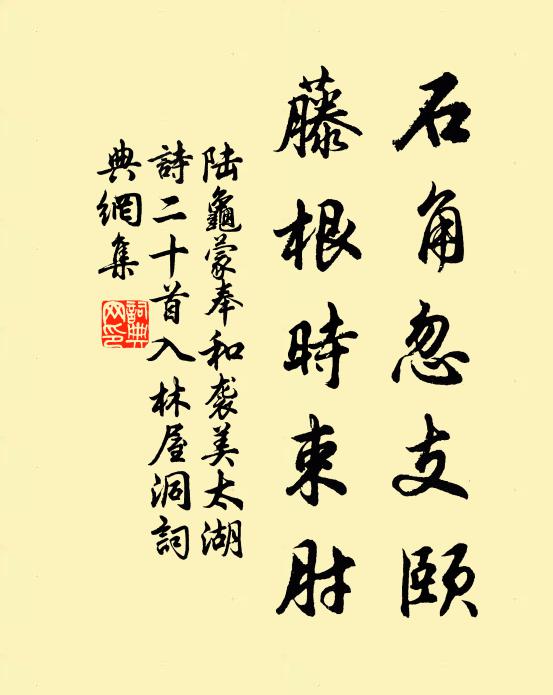 石角忽支頤
藤根時束肘
陆龜蒙奉和袭美太湖
詩二十首入林屋洞詞
典網集
詞典網印